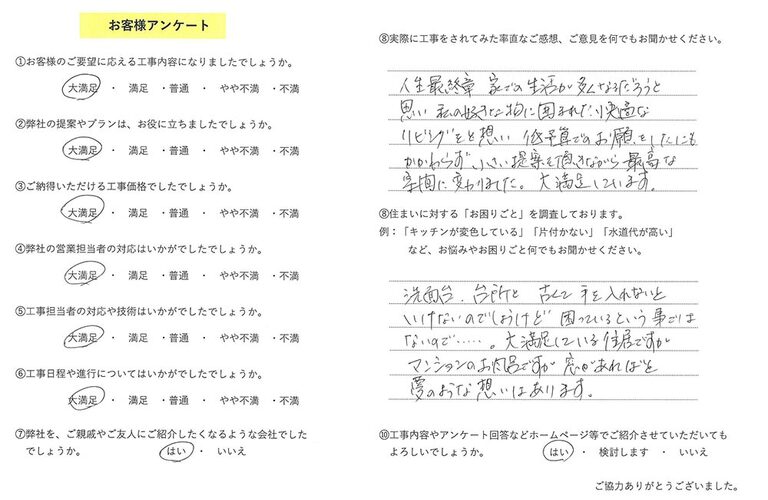 お客様アンケート
①お客様のご要望に応える工事内容になりましたでしょうか。
大満足 ・ 満足 ・普通 ・ やや不満 ・不満
②弊社の提案やプランは、お役に立ちましたでしょうか。
大満足 ・ 満足 ・普通 ・ やや不満 ・不満
③ご納得いただける工事価格でしたでしょうか。
大満足 ・ 満足 ・普通 ・ やや不満 ・不満
④弊社の営業担当者の対応はいかがでしたでしょうか。
大満足 ・ 満足 ・普通 ・ やや不満 ・不満
⑤工事担当者の対応や技術はいかがでしたでしょうか。
大満足 ・ 満足 ・普通 ・ やや不満 ・不満
⑥工事日程や進行についてはいかがでしたでしょうか。
大満足 ・ 満足 ・普通 ・ やや不満 ・不満
⑦弊社を、ご親戚やご友人にご紹介したくなるような会社でした
でしょうか。 はい ・ いいえ
⑧実際に工事をされてみた率直なご感想、ご意見を何でもお聞かせください。
人生最終章 家での生活が多くなるだろうと
思い 私の好きな物に囲まれた快適な
リビングをと想い 低予算でのお願いをしたにも
かかわらず いろいろ提案を頂きながら 最高な
空間に変わりました。大満足しています。
⑧住まいに対する「お困りごと」を調査しております。
例：「キッチンが変色している」「片付かない」「水道代が高い」
など、お悩みやお困りごと何でもお聞かせください。
洗面台、台所と 古くて 手を入れないと
いけないのでしょうけど 困っているという事では
ないので……。大満足している住居ですが
マンションのお風呂ですが 窓があればと
夢のような想いはあります。
⑩工事内容やアンケート回答などホームページ等でご紹介させていただいても
よろしいでしょうか。 はい ・ 検討します ・ いいえ
ご協力ありがとうございました。